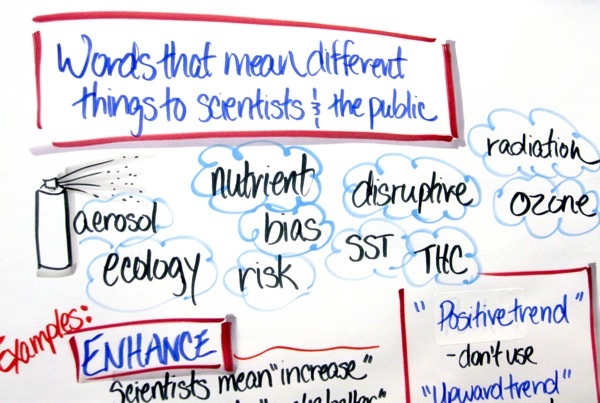 Words that mean different
things to scientists & the public
radiation
nutrient
disruptive
ozone
aerosol
bias
SST
THC
ecology
risk
Examples:
ENHANCE
Scientists mean "increase"
"Positive trend"
- don't use
"Upward trend"